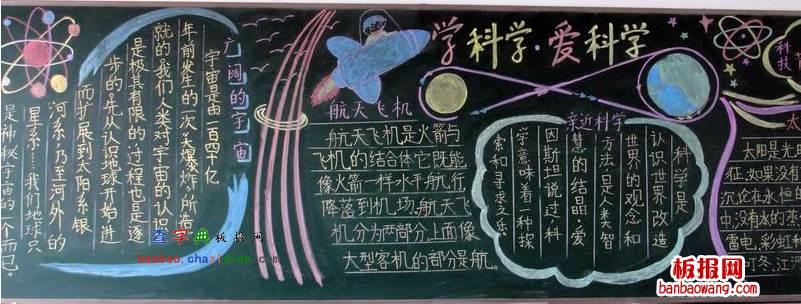 学科学·爱科学
广阔的宇宙
宇宙是由一百四十亿
年前发生的一次大爆炸所造
就的.我们人类对宇宙的认识
是极其有限的,过程也是逐
步的:先从认识地球开始进
而扩展到太阳系银
河系,乃至河外的
星系……我们地球只
是神秘宇宙的一个而已.
航天飞机
航天飞机是火箭与
飞机的结合体它既能
像火箭一样水平航行,
降落到机场.航天飞
机分为两部分上面像
大型客机的部分是航.
亲近科学
科学是
认识世界改造
世界的观念和
方法,是人类智
慧的结晶.爱
因斯坦说过科
学意味着一种探
索和寻求之乐.
科技
太
太阳是光
征.如果没有
沉沦在永恒的
中,没有水的蒸
雷电,彩虹种
冬,江河
查字典板报网
banbao.chazidian.com
板报网
banbaowang.com